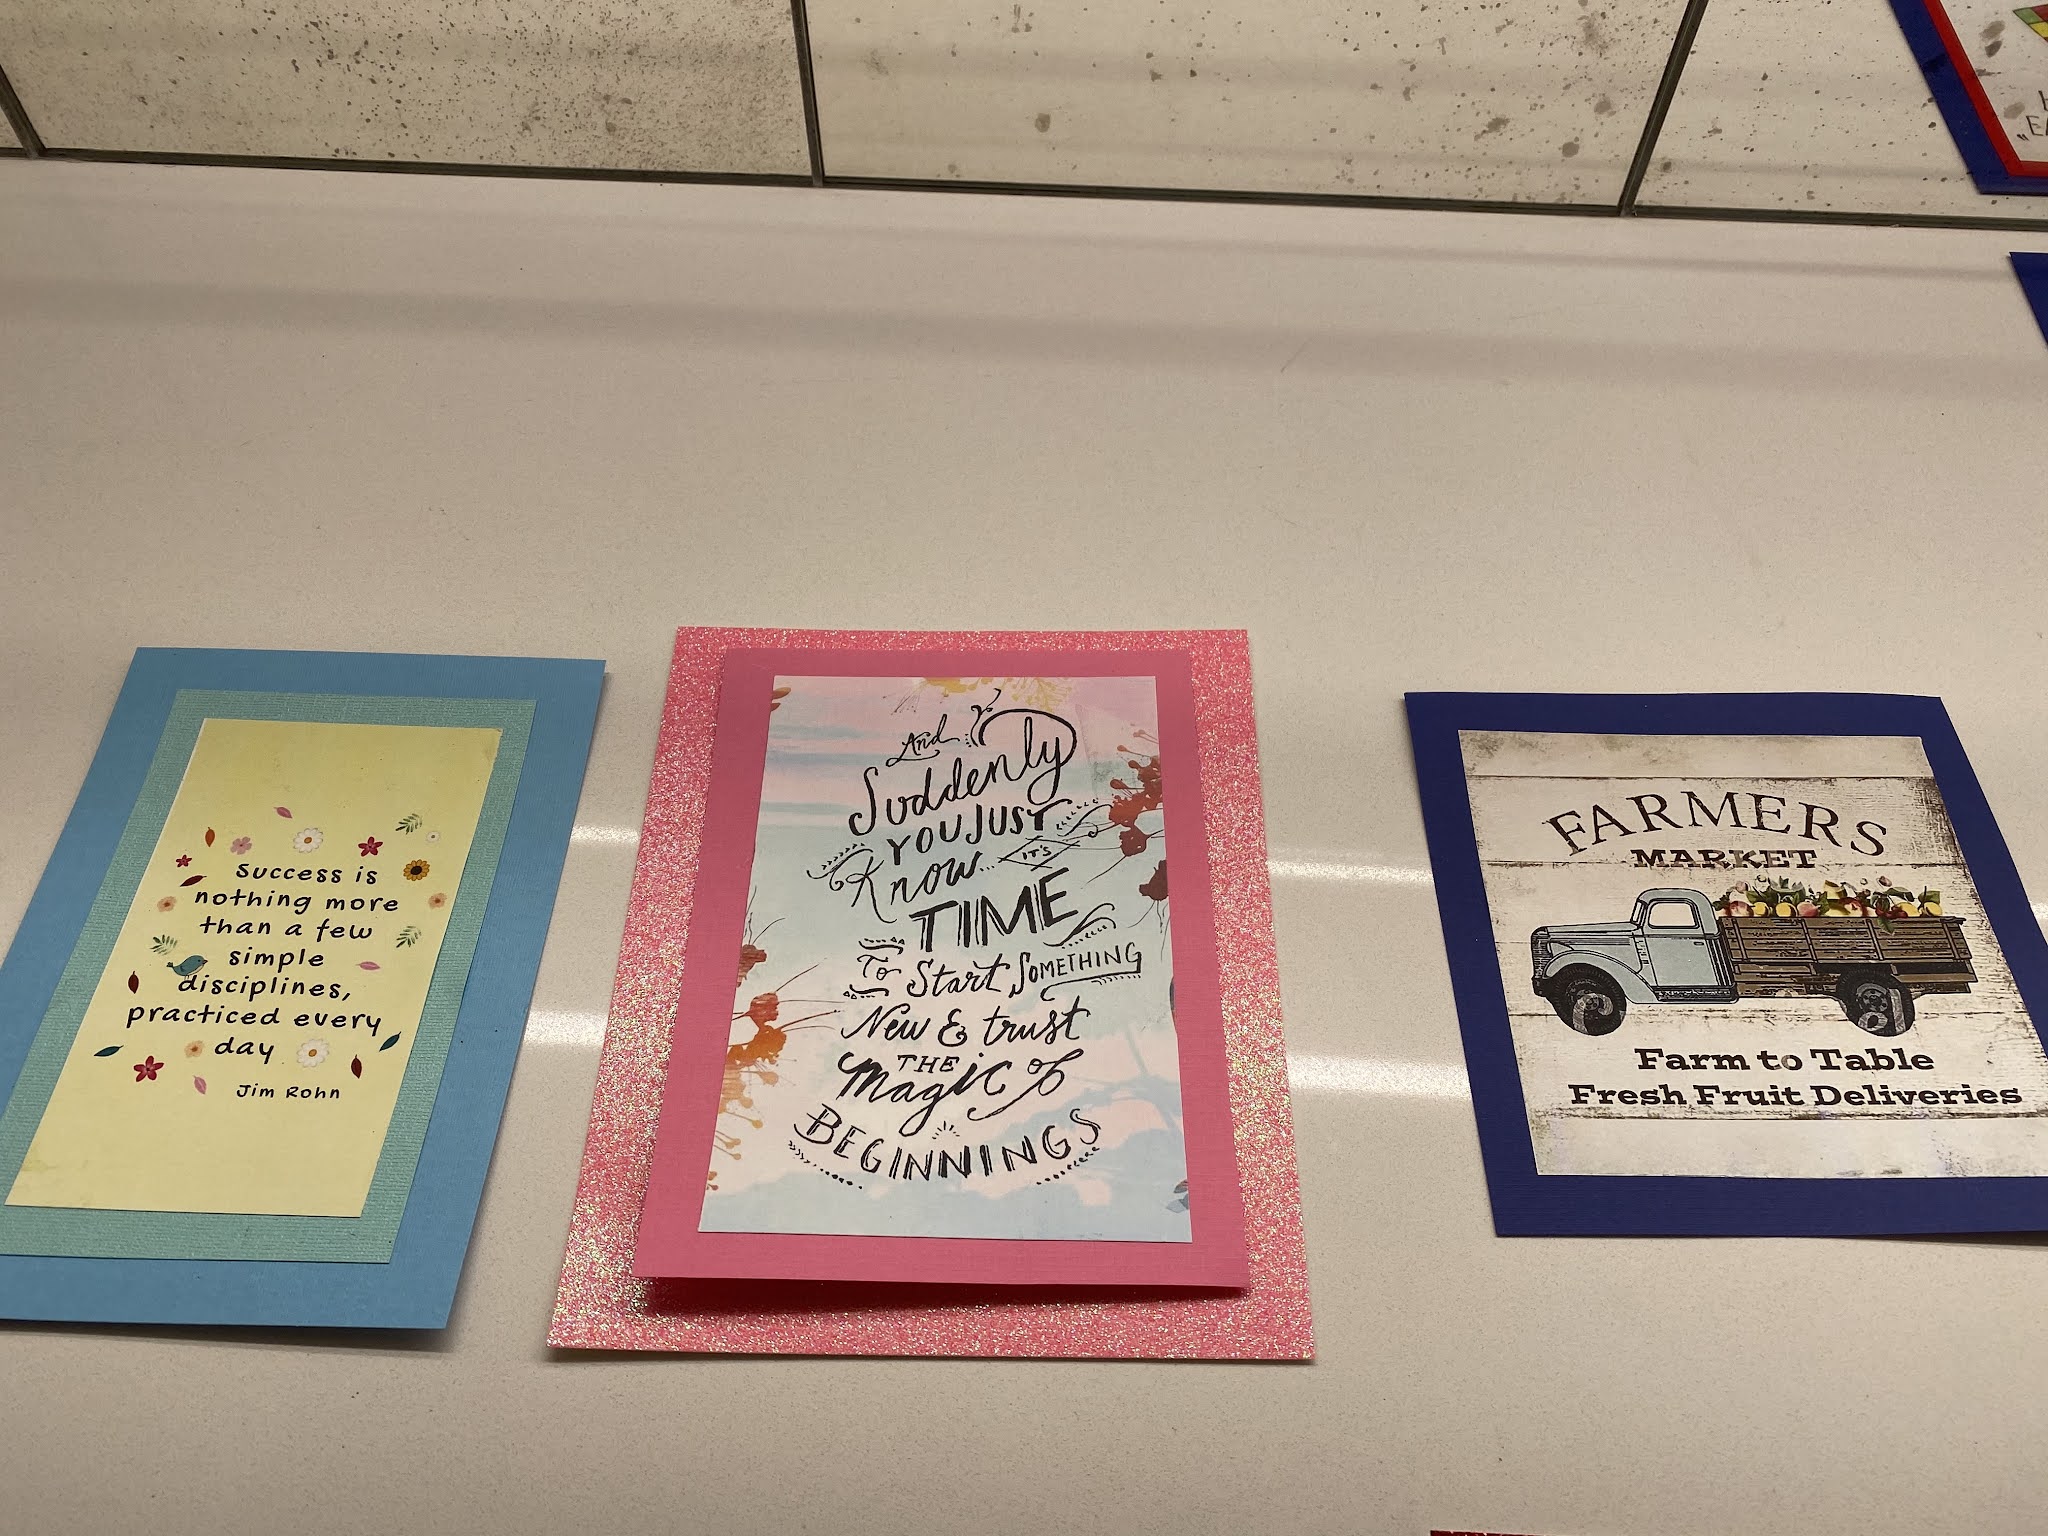 Success is
nothing more
than a few
simple
disciplines,
practiced every
day
Jim Rohn
And
Suddenly
YOU JUST
Know... IT'S
TIME
To Start SOMETHING
New & trust
THE
magic of
BEGINNINGS
FARMERS
MARKET
Farm to Table
Fresh Fruit Deliveries